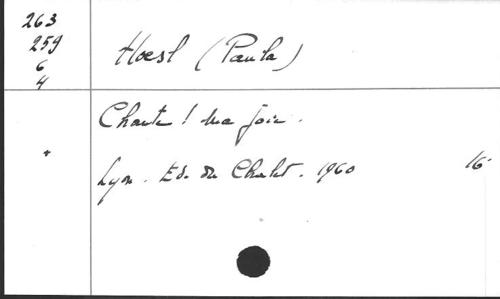 263
259
6
4
Hoesl (Paula)
Chante ! Ma joie.
Lyon. Ed. du Chalet. 1960 16